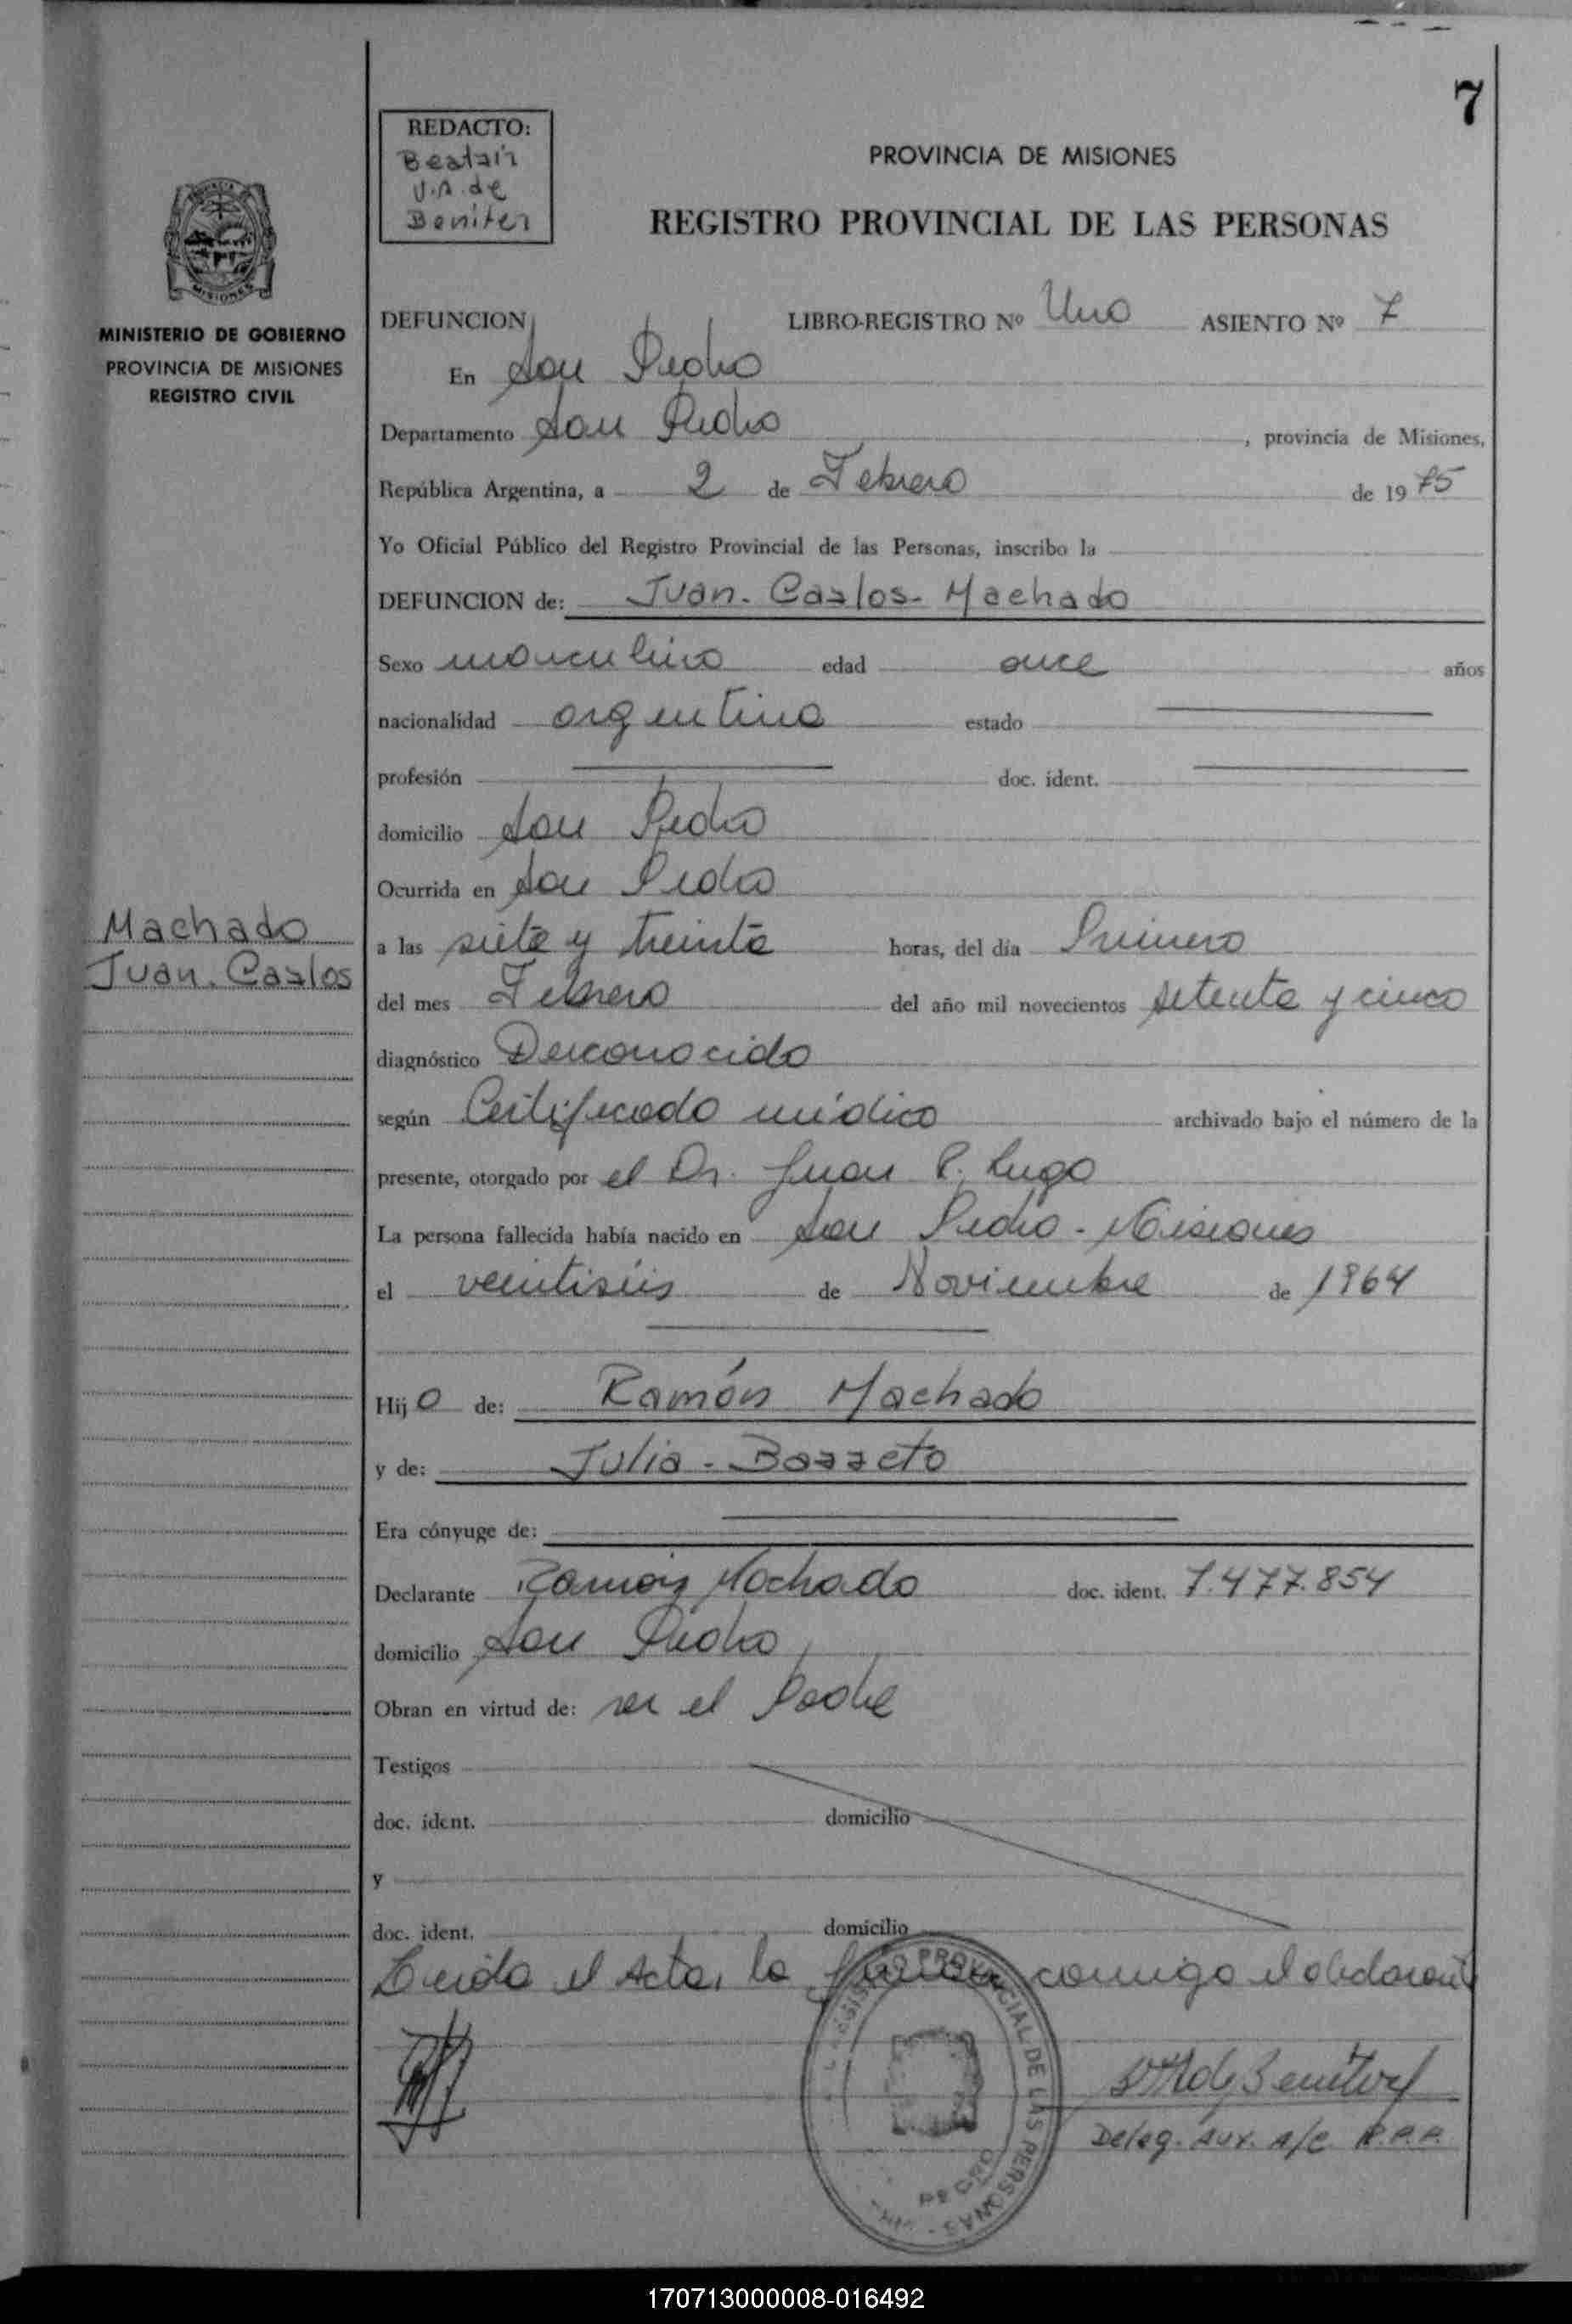 7
REDACTO:
Beatriz
V.A. de
Benitez
PROVINCIA DE MISIONES
REGISTRO PROVINCIAL DE LAS PERSONAS
MISIONES
MINISTERIO DE GOBIERNO
PROVINCIA DE MISIONES
REGISTRO CIVIL
DEFUNCION LIBRO-REGISTRO Nº Uno ASIENTO Nº 7
En San Pedro
Departamento San Pedro, provincia de Misiones,
República Argentina, a 2 de Febrero de 1975
Yo Oficial Público del Registro Provincial de las Personas, inscribo la
DEFUNCION de: Juan-Carlos-Machado
Sexo masculino edad once años
nacionalidad argentina estado
profesión doc. ident.
domicilio San Pedro
Ocurrida en San Pedro
Machado
Juan. Carlos
a las siete y treinta horas, del día Primero
del mes Febrero del año mil novecientos setenta y cinco
diagnóstico Desconocido
según Certificado médico archivado bajo el número de la
presente, otorgado por el Dr. Juan P. Lugo
La persona fallecida había nacido en San Pedro - Misiones
el veintiséis de Noviembre de 1964
Hijo de: Ramón Machado
y de: Julia-Barreto
Era cónyuge de:
Declarante Ramón Machado doc. ident. 7.477.854
domicilio San Pedro
Obran en virtud de: ser el Padre
Testigos
doc. ident. domicilio
y
doc. ident. domicilio
Leida el Acta, la firma conmigo el declarante
REGISTRO PROVINCIAL DE LAS PERSONAS
PEDRO
de Benitez
Deleg. Aux. A/C R.P.P.
170713000008-016492